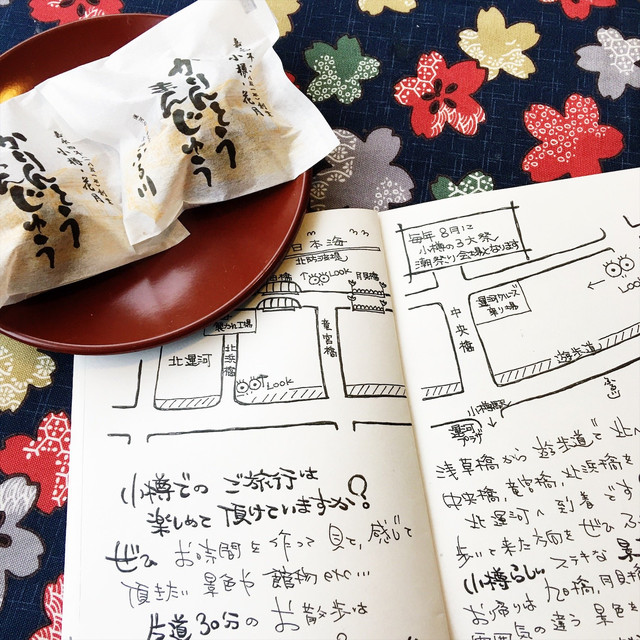 かりんとう
まんじゅう
かりんとう
まんじゅう
日本海
北防波堤
Look
月見橋
北運河
北浜橋
竜宮橋
Look
小樽での ご旅行は
楽しめて 頂けていますか?
ぜひ お時間を 作って 見て、感じて
頂きたい 景色や 館物 etc...
片道30分の お散歩は
毎年 8月に
小樽の3大祭り
潮祭り会場となります
中央橋
運河クルーズ
乗り場
Look
遊歩道
小樽駅
運河
プラザ
浅草橋から 遊歩道で 北へ
中央橋、竜宮橋、北浜橋を
北運河へ 到着です
歩いて来た方向を ぜひ
ステキな
小樽らしい
月見橋
お帰りは
雰囲気の違う 景色を